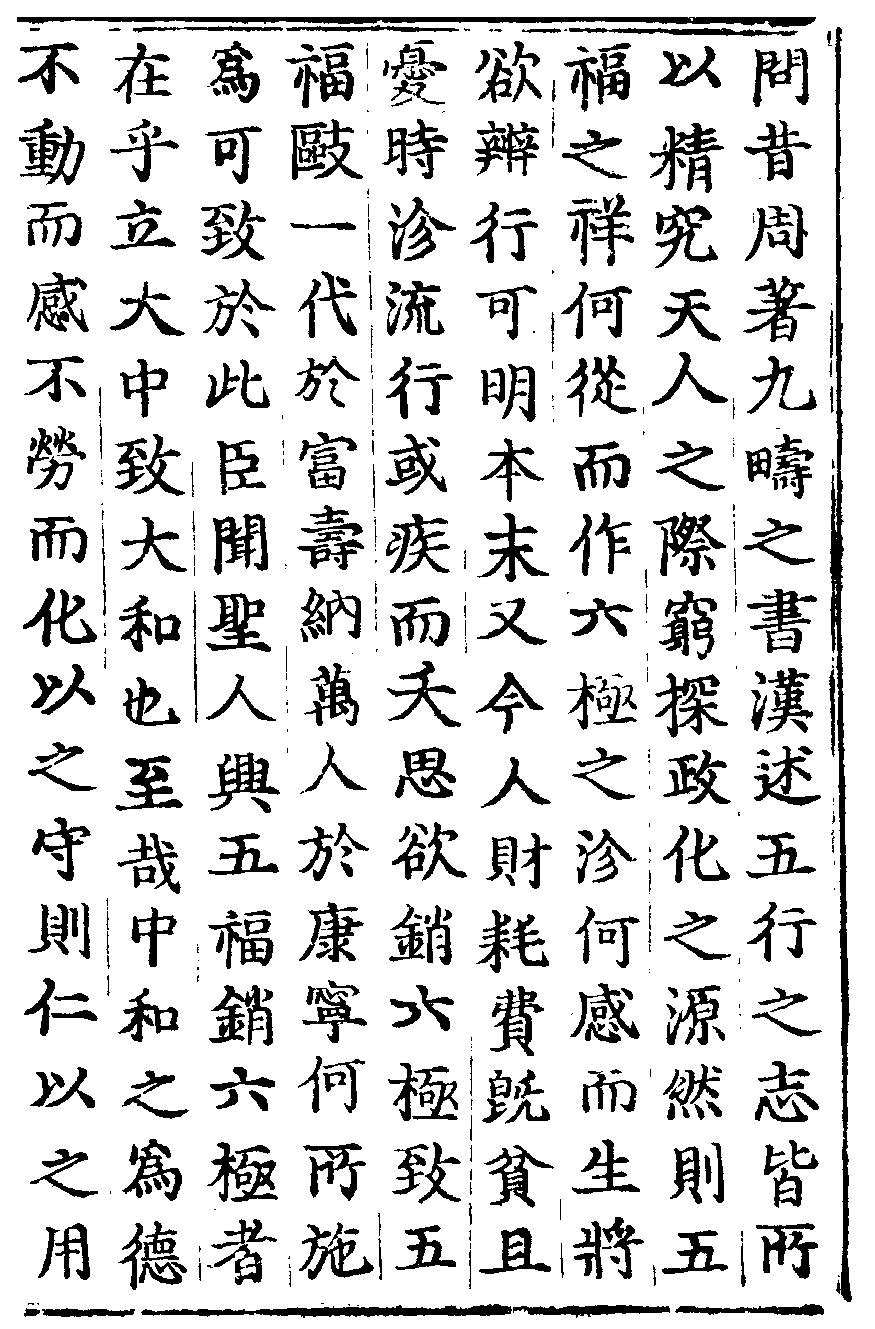 問昔周著九疇之書漢述五行之志皆所
以精究天人之際窮探政化之源然則五
福之祥何從而作六極之沴何感而生將
欲辨行可明本末又今人財耗費旣貧且
憂時沴流行或疾而夭思欲銷六極致五
福毆一代於富壽納萬人於康寧何所施
爲可致於此臣聞聖人興五福銷六極者
在乎立大中致大和也至哉中和之爲德
不動而感不勞而化以之守則仁以之用